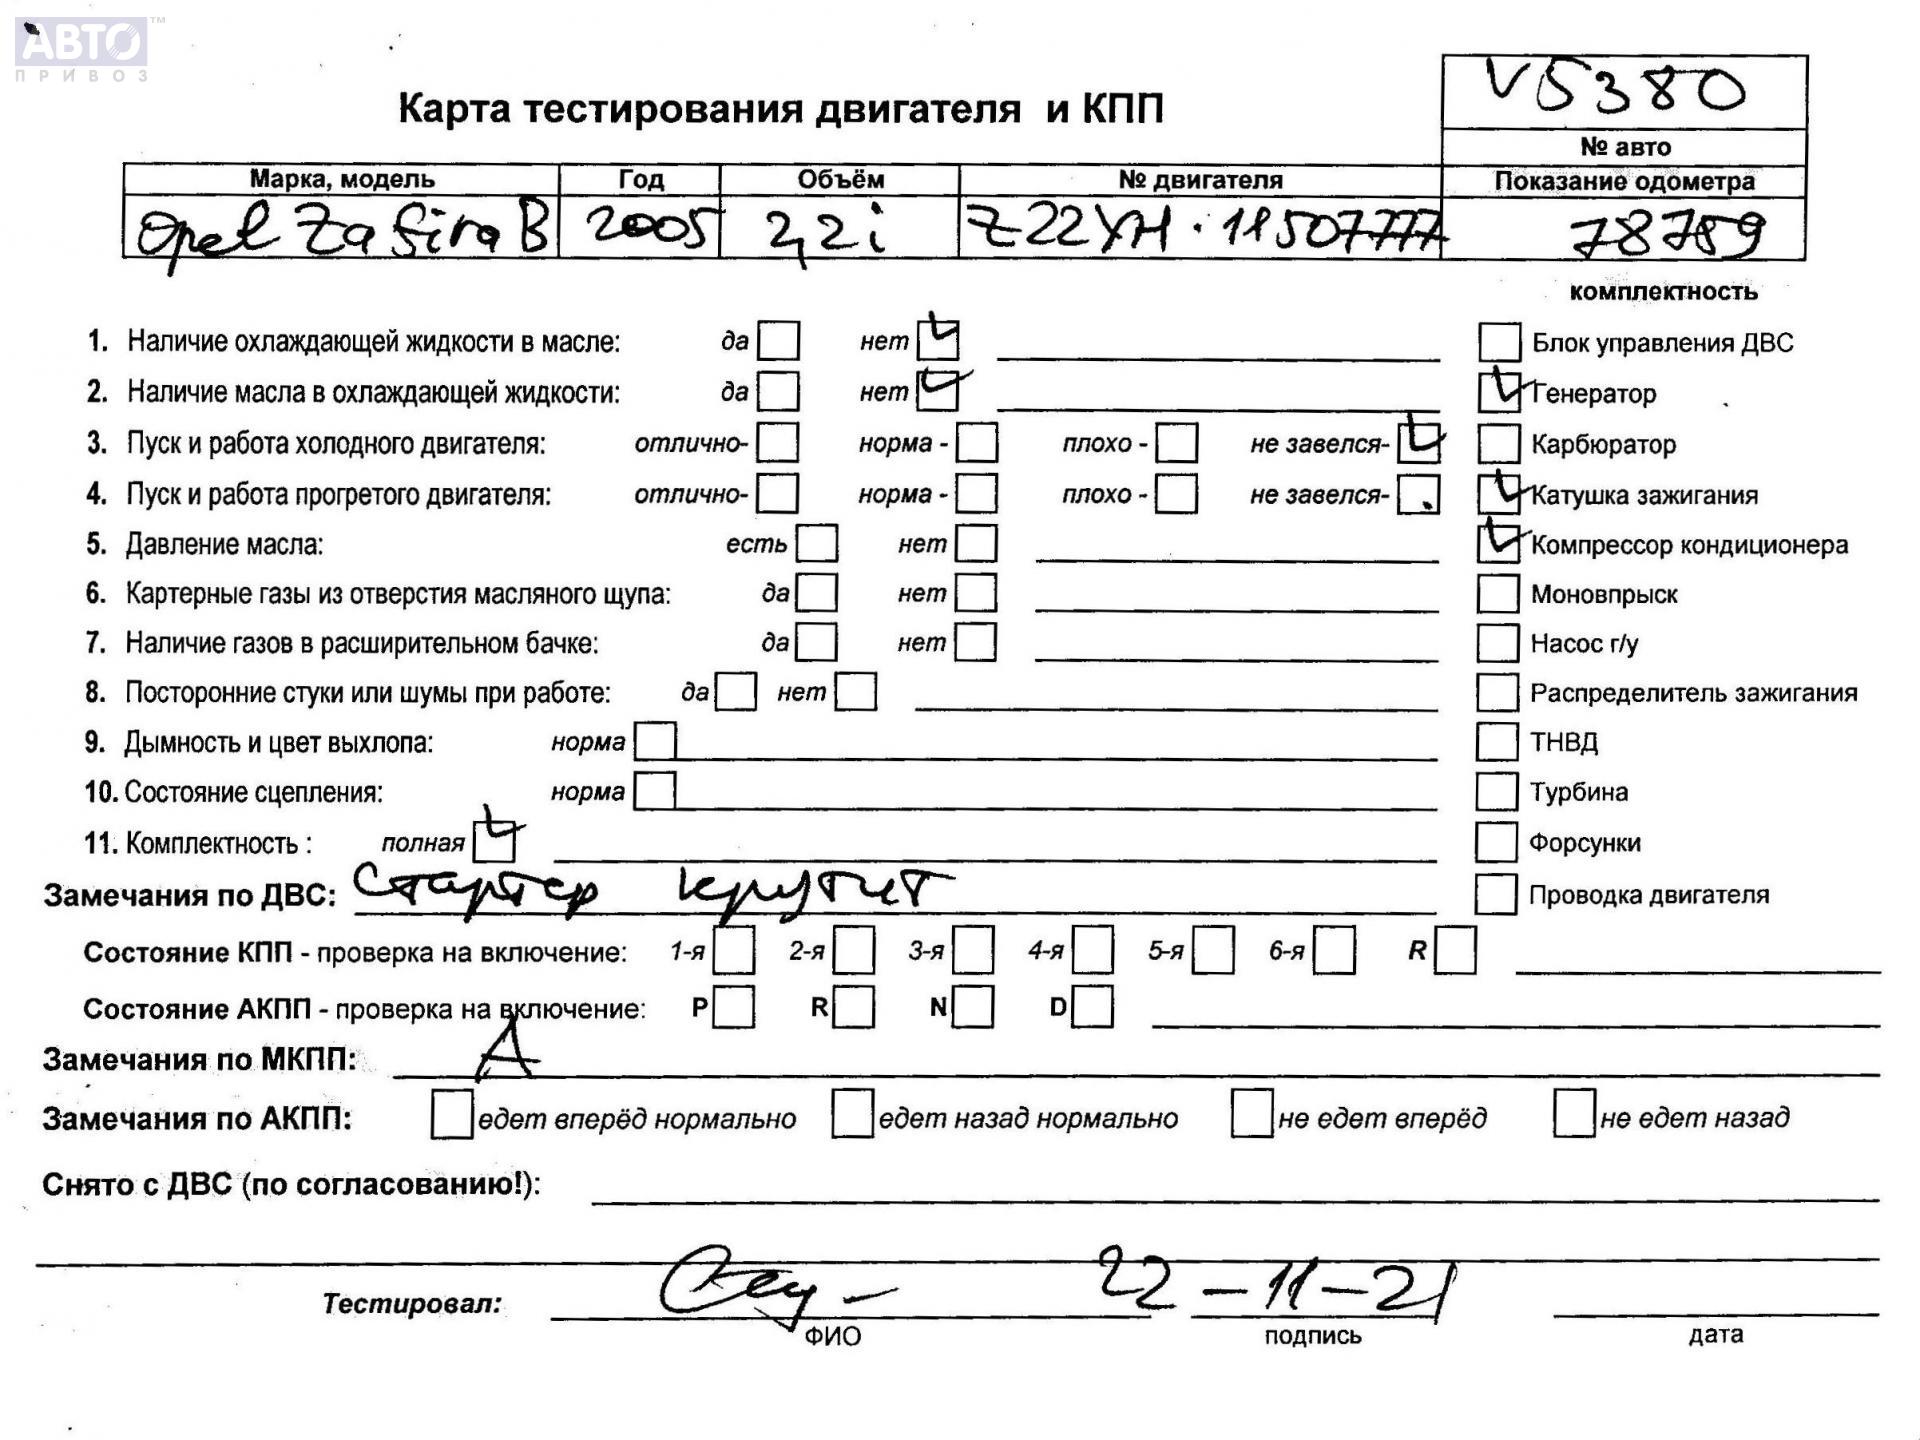 АВТО™
ПРИВОЗ
V5380
Карта тестирования двигателя и КПП
№ авто
Марка, модель Год Объём № двигателя Показание одометра
Opel Zafira B 2005 2,2i Z22YH·11507777 78759
комплектность
1. Наличие охлаждающей жидкости в масле: да нет Блок управления ДВС
2. Наличие масла в охлаждающей жидкости: да нет Генератор
3. Пуск и работа холодного двигателя: отлично- норма - плохо - не завелся- Карбюратор
4. Пуск и работа прогретого двигателя: отлично- норма - плохо - не завелся- Катушка зажигания
5. Давление масла: есть нет Компрессор кондиционера
6. Картерные газы из отверстия масляного щупа: да нет Моновпрыск
7. Наличие газов в расширительном бачке: да нет Насос г/у
8. Посторонние стуки или шумы при работе: да нет Распределитель зажигания
9. Дымность и цвет выхлопа: норма ТНВД
10. Состояние сцепления: норма Турбина
11. Комплектность : полная Форсунки
Замечания по ДВС: стартер крутит Проводка двигателя
Состояние КПП - проверка на включение: 1-я 2-я 3-я 4-я 5-я 6-я R
Состояние АКПП - проверка на включение: P R N D
Замечания по МКПП: А
Замечания по АКПП: едет вперёд нормально едет назад нормально не едет вперёд не едет назад
Снято с ДВС (по согласованию!):
Тестировал: 22-11-21
ФИО подпись дата